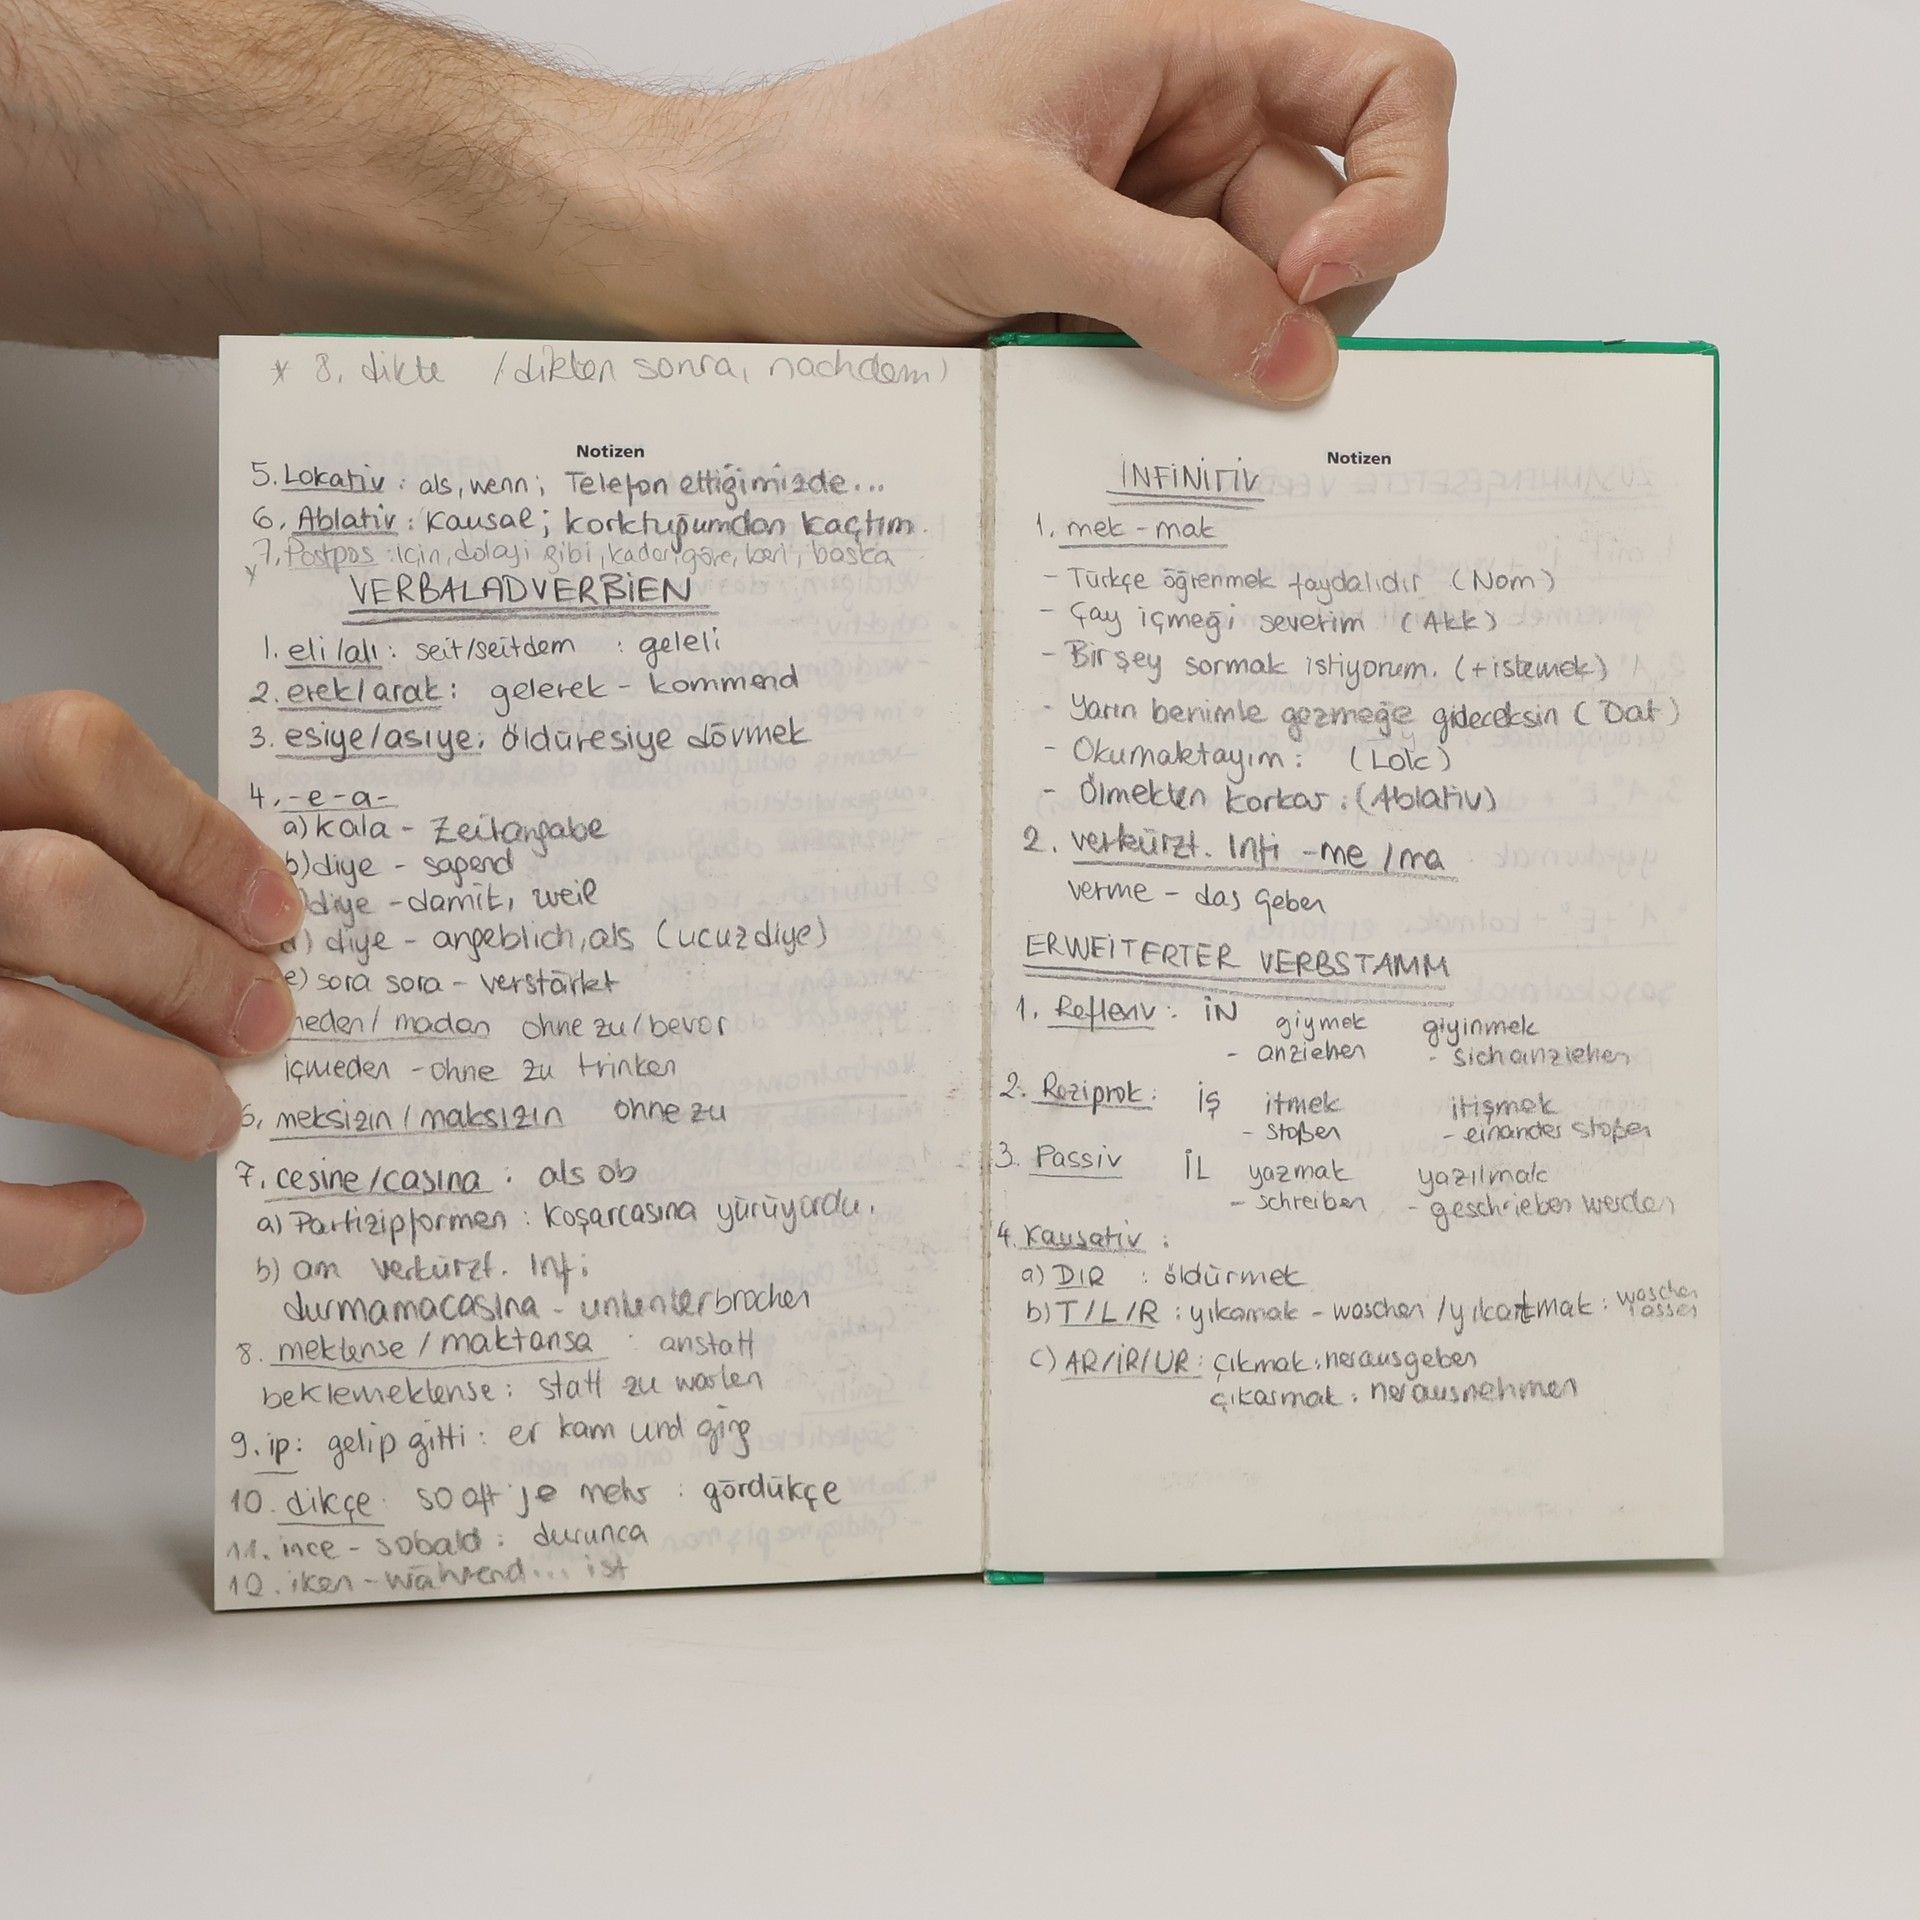 * 8. dikte / dikten sonra, nachdem)
Notizen
5. Lokativ : als, wenn; Telefon ettiğimizde...
6. Ablativ : Kausal; korktuğumdan kaçtım.
7. Postpos : için, dolayı gibi, kadar, göre, beri, başka
VERBALADVERBIEN
1. eli/alı : seit/seitdem : geleli
2. erek/arak : gelerek - kommend
3. esiye/asıye: öldüresiye dövmek
4. -e-a-
a) kala - Zeitangabe
b) diye - sagend
) diye - damit, weil
d) diye - angeblich, als (ucuz diye)
e) sora sora - verstärkt
meden / madan ohne zu / bevor
içmeden - ohne zu trinken
6. meksizin / maksızın ohne zu
7. cesine / casına : als ob
a) Partizipformen : koşarcasına yürüyordu.
b) am verkürzt. Inf:
durmamacasına - ununterbrochen
8. mektense / maktansa : anstatt
beklemektense : statt zu warten
9. ip : gelip gitti : er kam und ging
10. dikçe : so oft je mehr : gördükçe
11. ince - sobald : durunca
12. iken - während... ist
Notizen
INFİNİTİV
1. mek - mak
- Türkçe öğrenmek faydalıdır (Nom)
- Çay içmeği severim (Akk)
- Bir şey sormak istiyorum. (+ istemek)
- Yarın benimle gezmeğe gideceksin (Dat)
- Okumaktayım : (Lok)
- Ölmekten korkar : (Ablativ)
2. verkürzt. Infi -me / ma
verme - das Geben
ERWEİTERTER VERBSTAMM
1. Reflexiv : İN giymek giyinmek
- anziehen - sich anziehen
2. Reziprok : İŞ itmek itişmek
- stoßen - einander stoßen
3. Passiv İL yazmak yazılmak
- schreiben - geschrieben werden
4. Kausativ :
a) DIR : öldürmek
b) T / L / R : yıkamak - waschen / yıkatmak : waschen lassen
c) AR / İR / UR : çıkmak : herausgeben
çıkarmak : herausnehmen